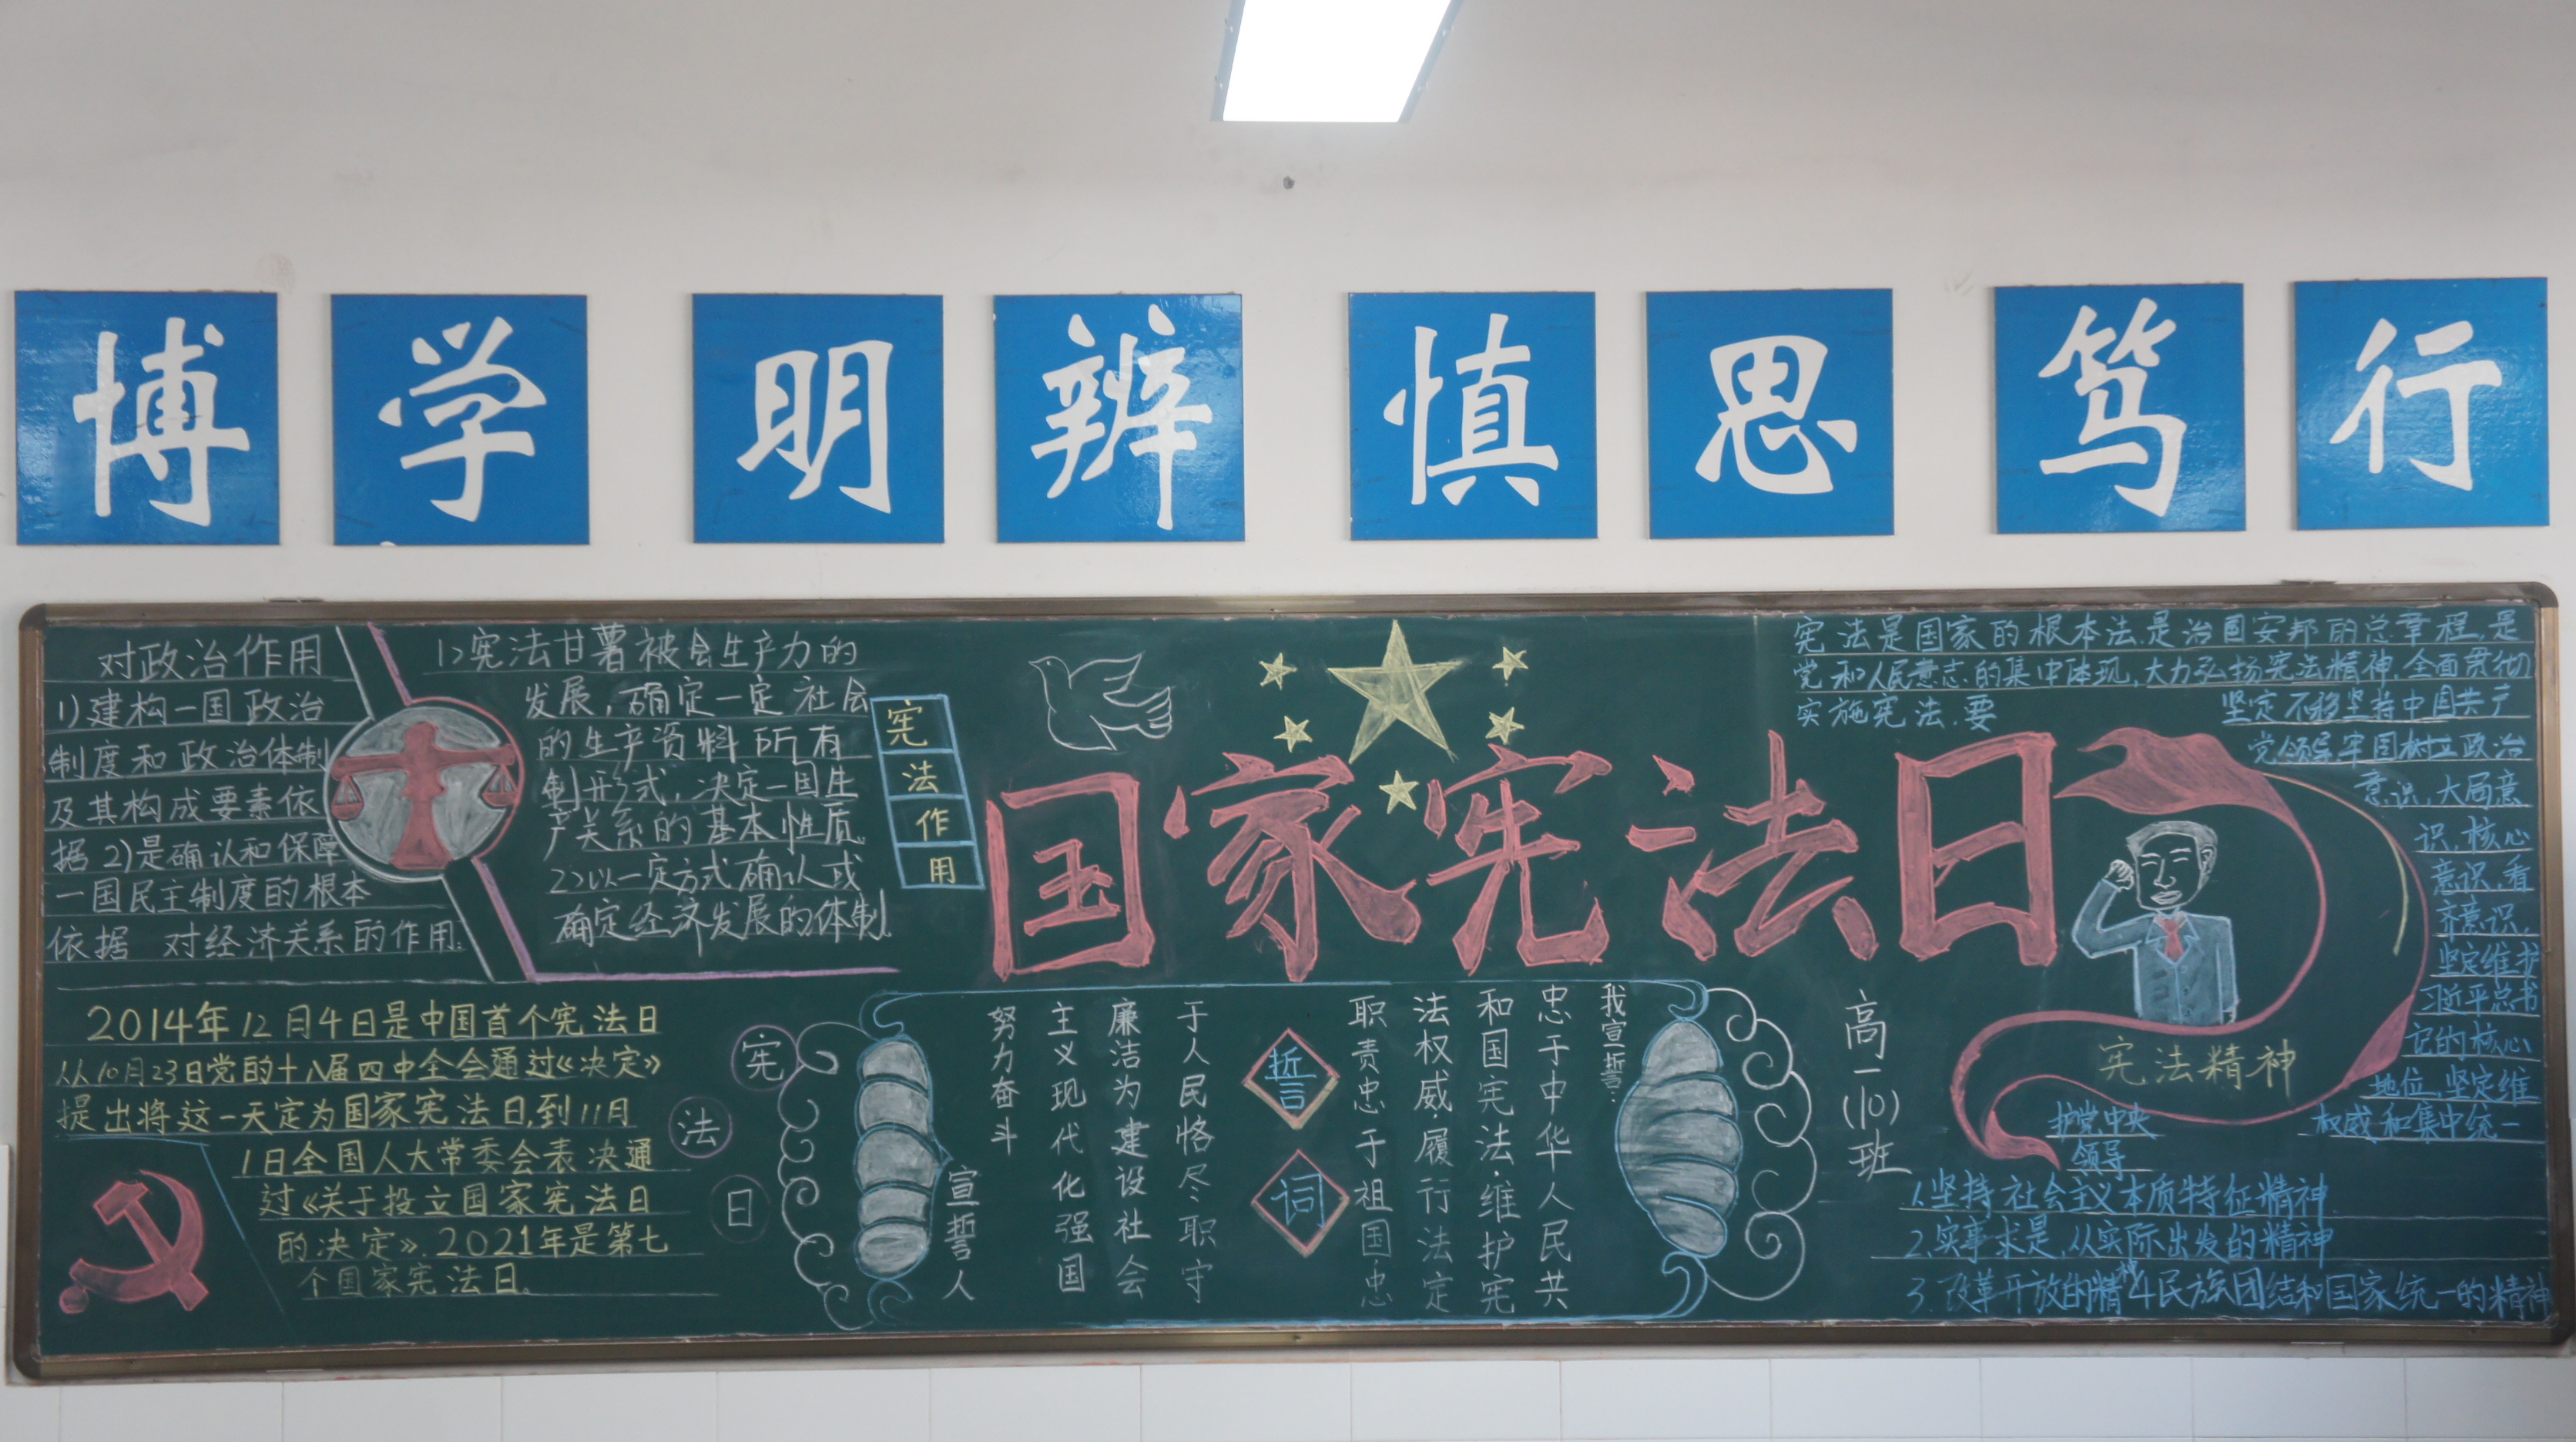 博学 明辨 慎思 笃行
对政治作用
1)建构一国政治
制度和政治体制
及其构成要素依
据2)是确认和保障
一国民主制度的根本
依据 对经济关系的作用:
1>宪法甘薯被会生产力的
发展,确定一定社会
的生产资料所有
制形式,决定一国生
产关系的基本性质.
2>以一定方式确认或
确定经济发展的体制.
宪法作用
国家宪法日
宪法是国家的根本法.是治国安邦的总章程,是
党和人民意志的集中体现,大力弘扬宪法精神,全面贯彻
实施宪法.要
坚定不移坚持中国共产
党领导牢固树立政治
意识,大局意
识,核心
意识,看
齐意识,
坚定维护
习近平总书
记的核心
地位,坚定维
护党中央
权威和集中统一
领导
宪法精神
1.坚持社会主义本质特征精神
2.实事求是,从实际出发的精神
3.改革开放的精神 4民族团结和国家统一的精神
2014年12月4日是中国首个宪法日
从10月23日党的十八届四中全会通过《决定》
提出将这一天定为国家宪法日,到11月
1日全国人大常委会表决通
过《关于投立国家宪法日
的决定》.2021年是第七
个国家宪法日.
宪
法
日
誓词
我宣誓:
忠于中华人民共
和国宪法.维护宪
法权威.履行法定
职责忠于祖国忠
于人民恪尽职守
廉洁为建设社会
主义现代化强国
努力奋斗
宣誓人
高一(10)班